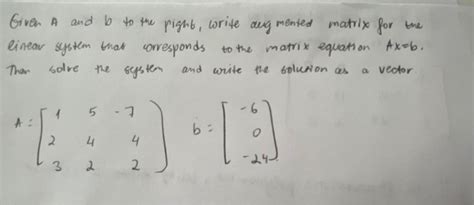 Given A and b to the right, write augmented matrix for the
linear system that corresponds to the matrix equation Ax=b.
Then solve the system and write the solution as a vector
A = [ 1 5 -7
2 4 4
3 2 2 ]
b = [ -6
0
-24 ]